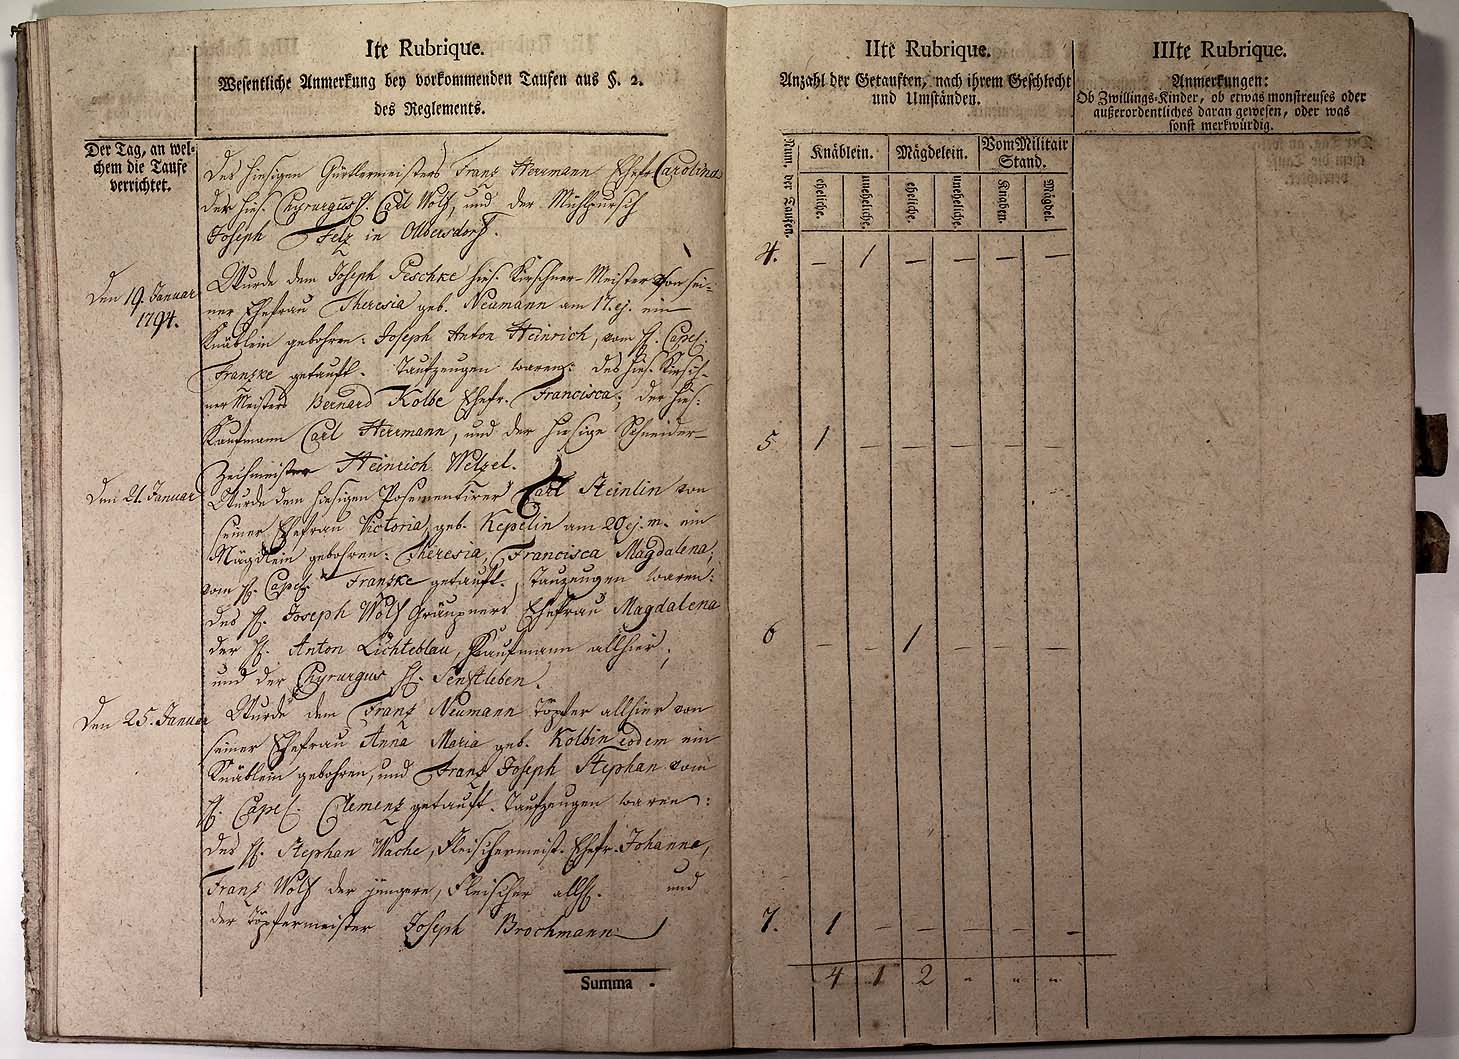 Ite Rubrique.
Wesentliche Anmerkung bey vorkommenden Taufen aus §. 2.
des Reglements.
Der Tag, an wel-
chem die Taufe
verrichtet.
Des hiesigen Gürtlermeisters Franz Herrmann Ehefr. Carolina
der hies. Chyrurgus H. Carl Wolf, und der Mühlpursch
Joseph Felz in Olbersdorf.
Den 19. Januar
1794.
Wurde dem Joseph Peschke hies. Kirschner-Meister von sei-
ner Ehefrau Theresia geb. Neumann am 17. ej. ein
Knäblein gebohren: Joseph Anton Heinrich, vom H. Capel:
Franske getauft. Taufzeugen waren: des hies. Kirsch-
ner Meisters Bernard Kolbe Ehefr. Francisca; der hies.
Kaufmann Carl Herrmann, und der hiesige Schneider-
Zechmeister Heinrich Welzel.
Den 21. Januar
Wurde dem hiesigen Posementirer Carl Steinlin von
seiner Ehefrau Victoria, geb. Kepelin am 20 ej. m. ein
Mägdlein gebohren: Theresia, Francisca Magdalena,
vom H. Capel. Franske getauft. Tauzeugen waren:
des H. Joseph Wolf Gräupners Ehefrau Magdalena
der H. Anton Lichteblau, Kaufmann allhier,
und der Chyrurgus H. Senftleben.
Den 25. Januar
Wurde dem Franz Neumann Töpfer allhier von
seiner Ehefrau Anna Maria geb. Kolbin eodem ein
Knäblein gebohren, und Franz Joseph Stephan vom
H. Capel. Clemenz getauft. Taufzeugen waren:
des H. Stephan Wache, Fleischermeist. Ehefr. Johanna,
Franz Wolf der jüngere, Fleischer allh. und
der Töpfermeister Joseph Brochmann
Summa
IIte Rubrique.
Anzahl der Getauften, nach ihrem Geschlecht
und Umständen.
Num. der Taufen.
Knäblein. Mägdelein. Vom Militair
Stand.
eheliche. uneheliche. eheliche. uneheliche. Knaben. Mägdel.
4. — 1 — — — —
5. 1 — — — — —
6 — — 1 — — —
7. 1 — — — — —
4 1 2 - - -
IIIte Rubrique.
Anmerkungen:
Ob Zwillings-Kinder, ob etwas monstreuses oder
außerordentliches daran gewesen, oder was
sonst merkwürdig.